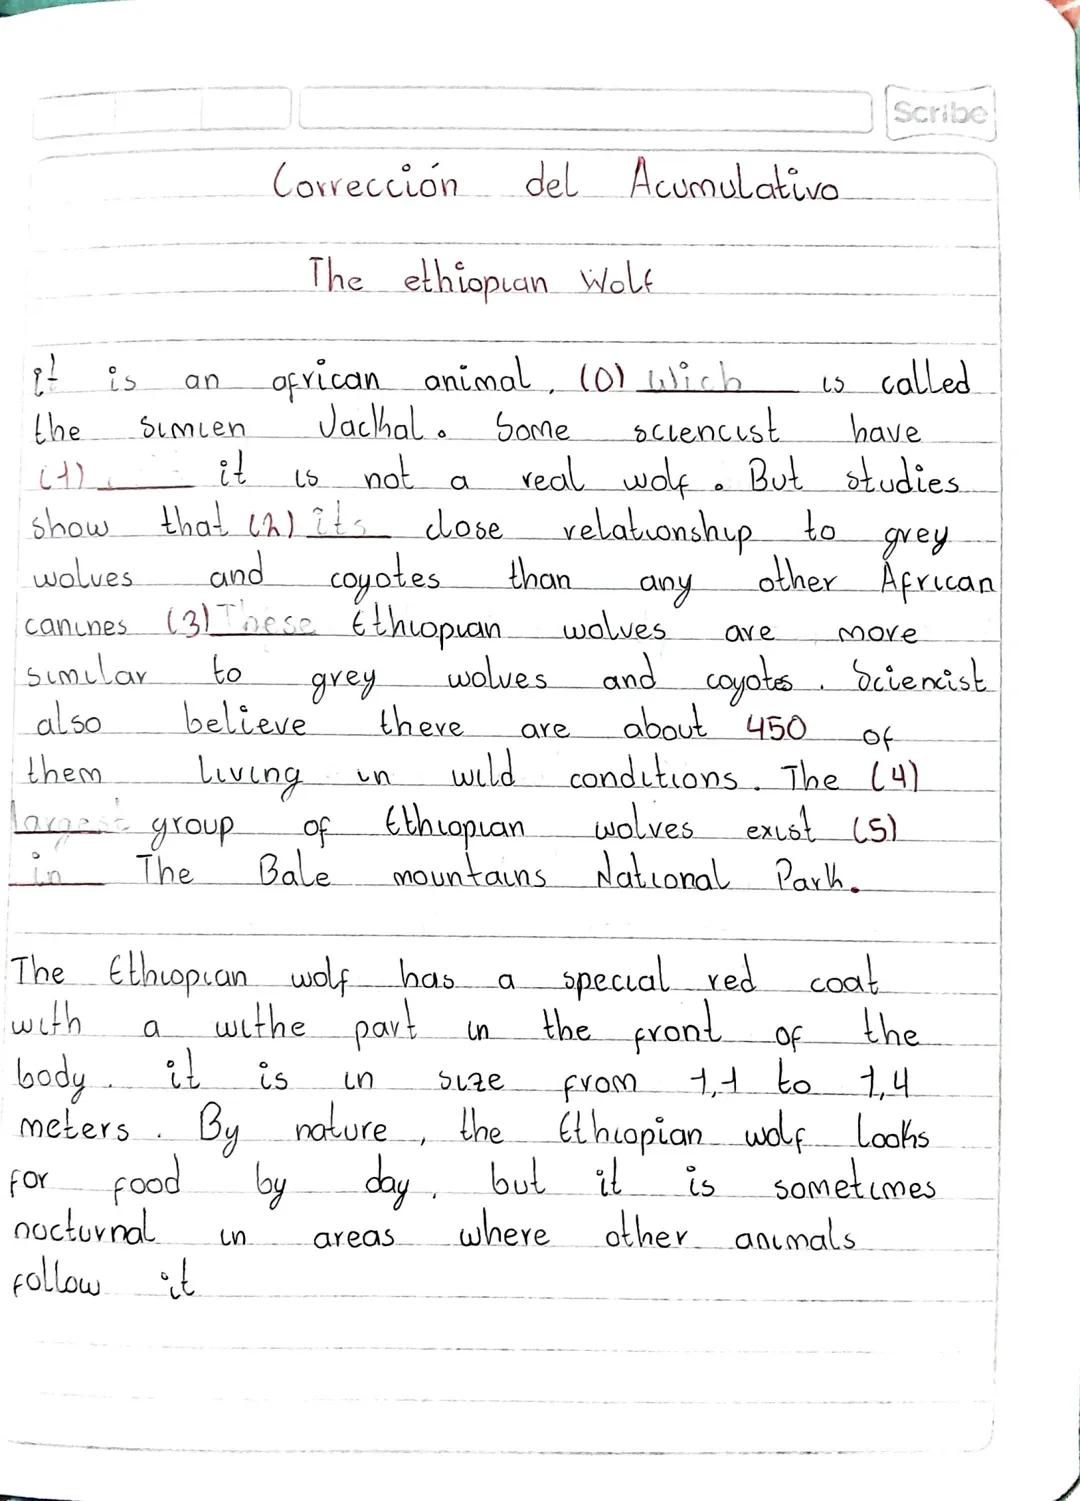 Scribe
Corrección del Acumulativo
The ethiopian Wolf
it is an african animal, (0) wich is called
the simien Jackal. Some sciencist have
(1) it is not a real wolf. But studies
show that (2) its close relationship to grey
wolves and coyotes than any other African
canines (3) These Ethiopian wolves are more
similar to grey wolves and coyotes. Sciencist
also believe there are about 450 of
them living in wild conditions. The (4)
largest group of Ethiopian wolves exist (5)
in The Bale mountains National Park.
The Ethiopian wolf has a special red coat
with a withe part in the front of the
body. it is in size from 1,1 to 1,4
meters. By nature, the Ethiopian wolf looks
for food by day, but it is sometimes
nocturnal in areas where other animals
follow it